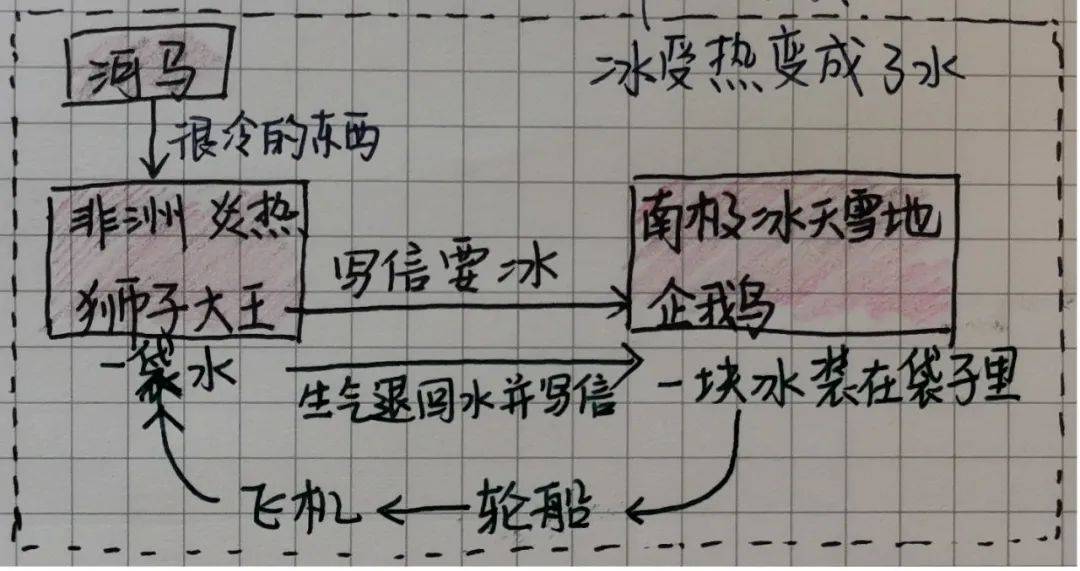 河马
冰受热变成了水
很冷的东西
非洲 炎热
南极冰天雪地
写信要冰
狮子大王
企鹅
一袋水
生气退回水并写信
一块冰装在袋子里
飞机
轮船